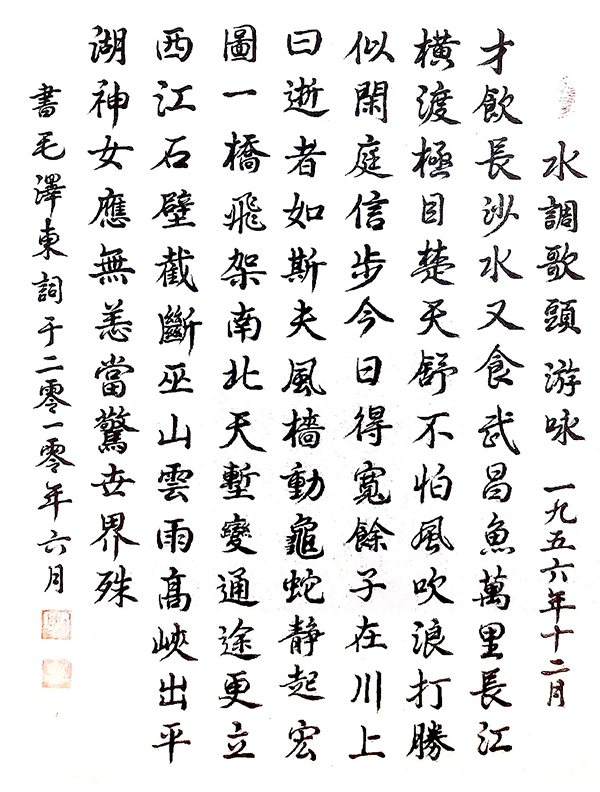 水調歌頭 游咏 一九五六年十二月
才飲長沙水又食武昌魚萬里長江
橫渡極目楚天舒不怕風吹浪打勝
似閑庭信步今日得寬餘子在川上
曰逝者如斯夫風檣動龜蛇靜起宏
圖一橋飛架南北天塹變通途更立
西江石壁截斷巫山雲雨高峽出平
湖神女應無恙當驚世界殊
書毛澤東詞于二零一零年六月